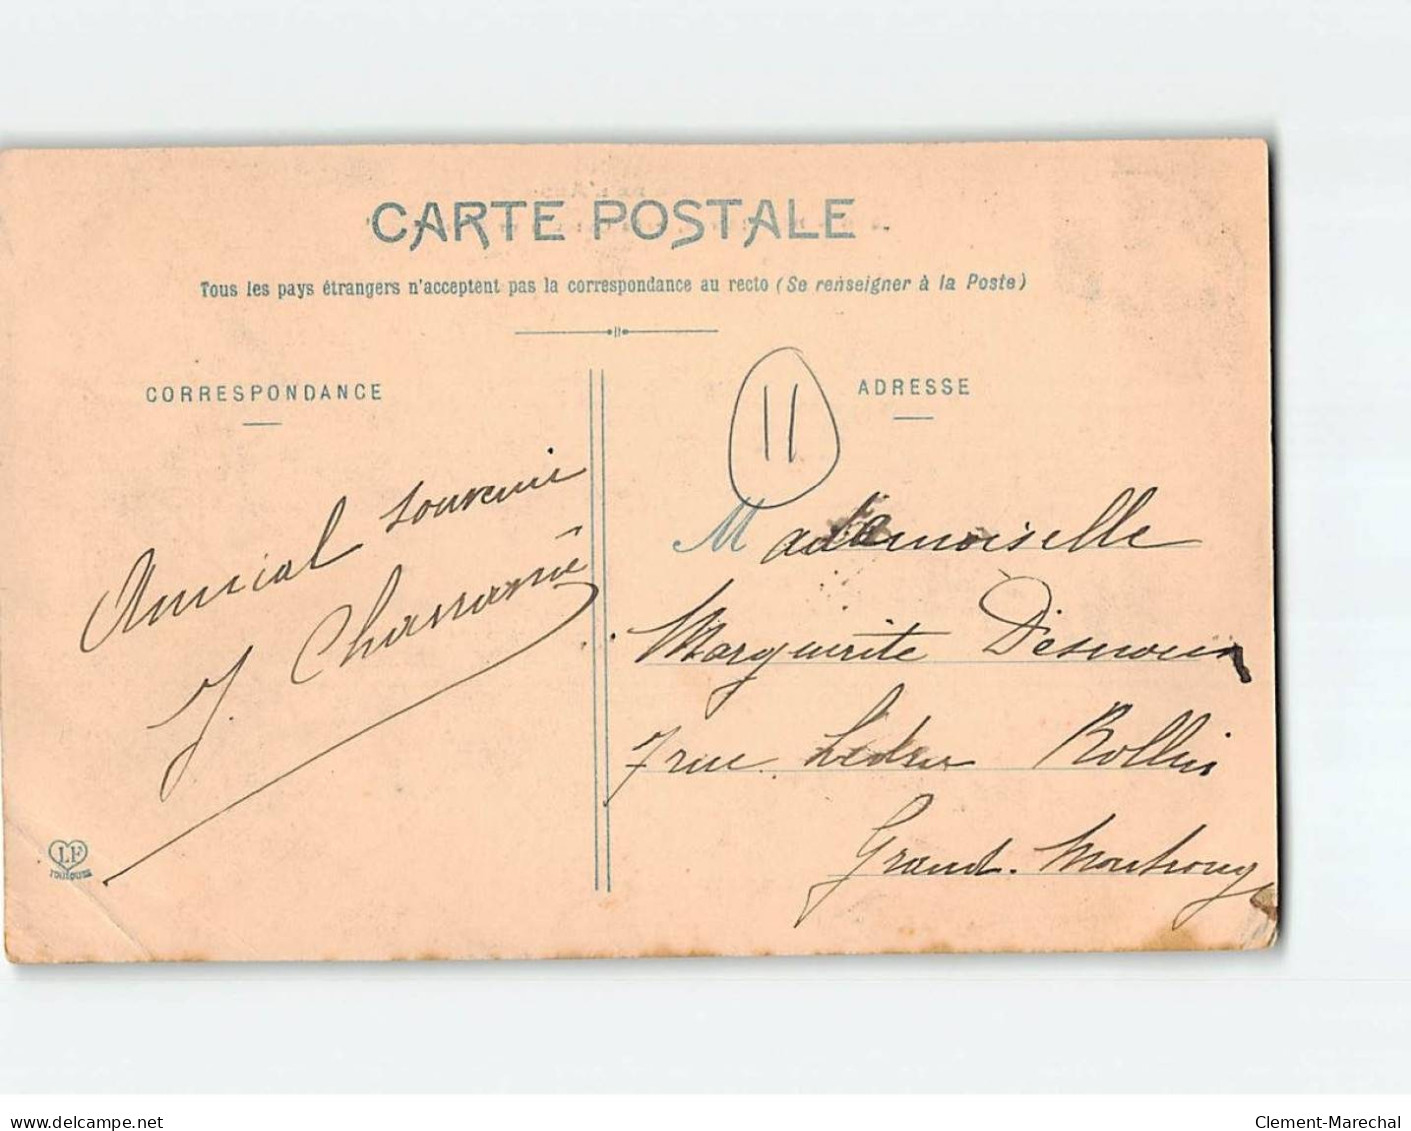 CARTE POSTALE
Tous les pays étrangers n'acceptent pas la correspondance au recto (Se renseigner à la Poste)
CORRESPONDANCE
ADRESSE
11
Amical souvenir
J.
Mademoiselle
Marguerite
7 rue Ledru Rollin
Grand-Montrouge
LF
TOULOUSE
www.delcampe.net
Clement-Marechal